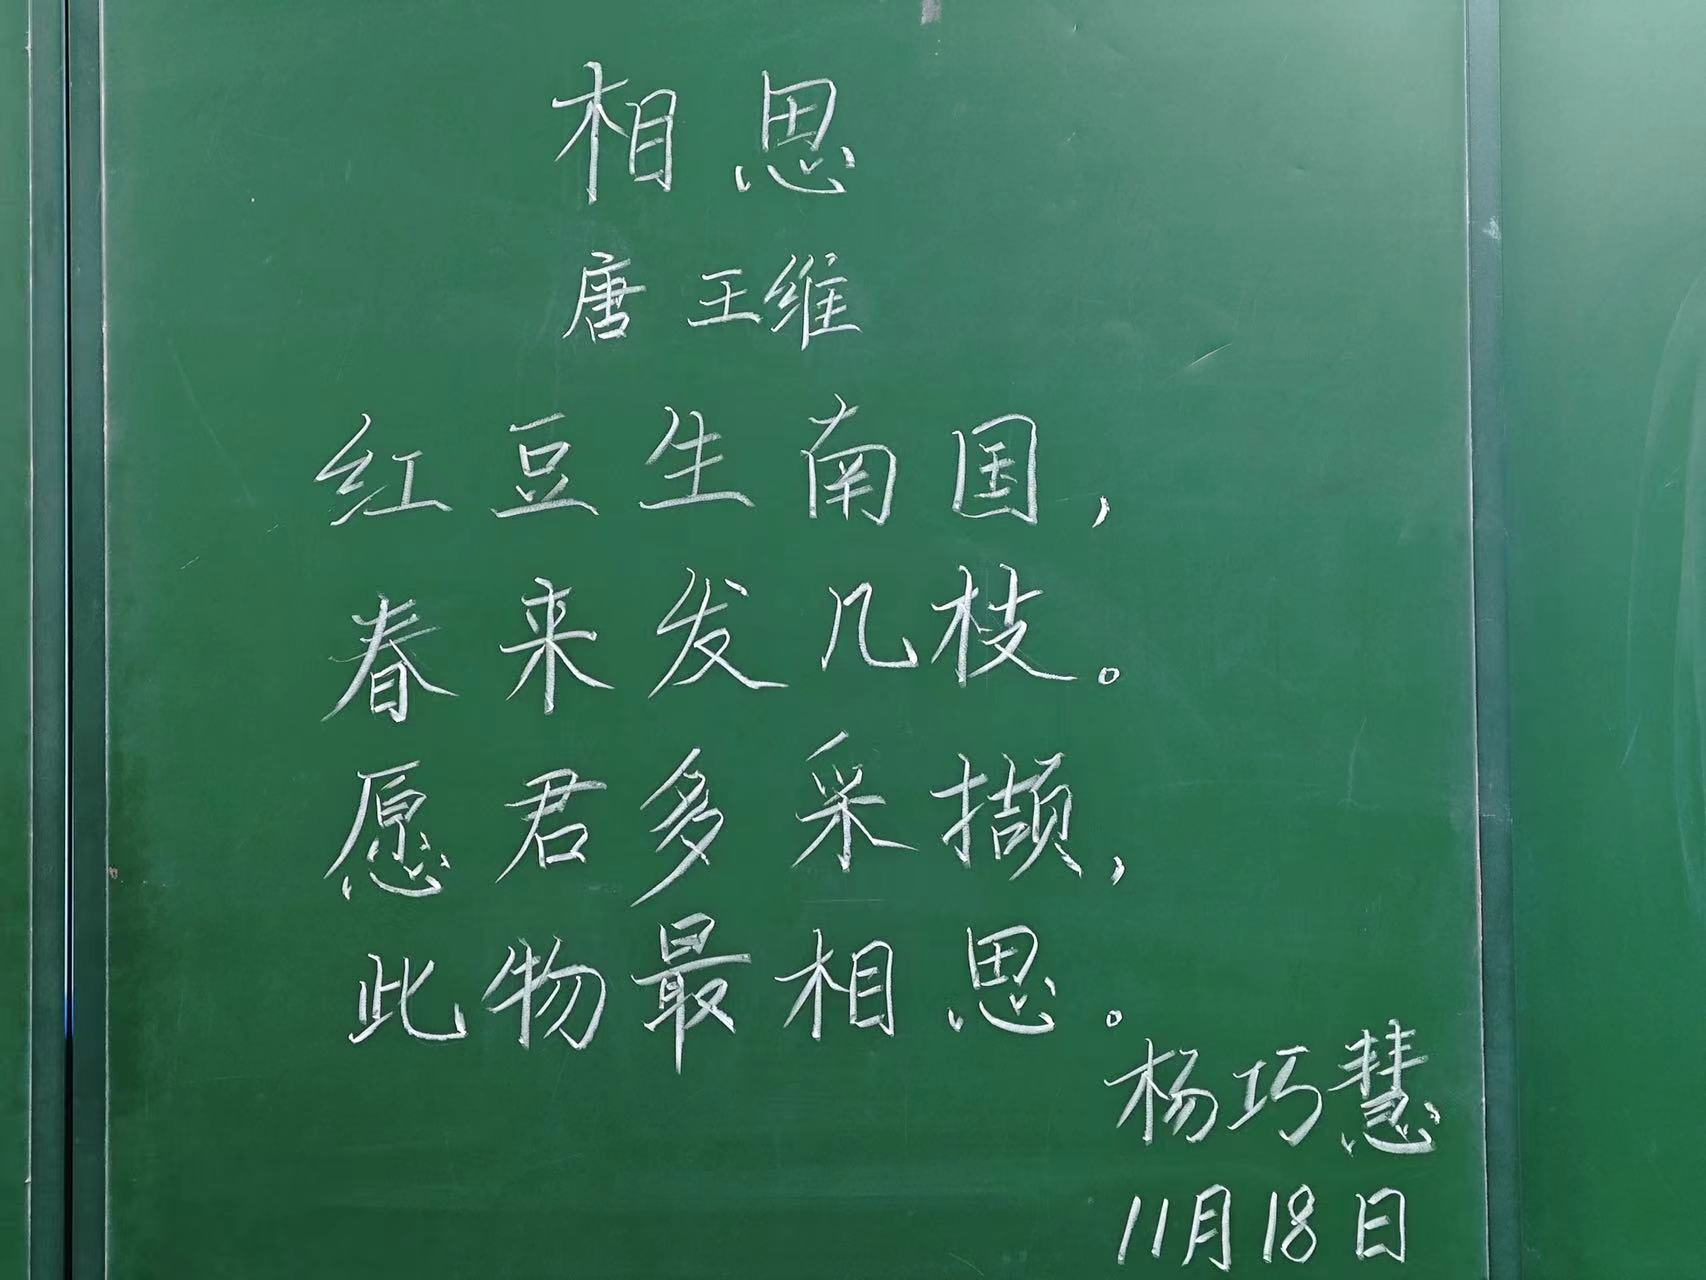 相思
唐 王维
红豆生南国，
春来发几枝。
愿君多采撷，
此物最相思。
杨巧慧
11月18日